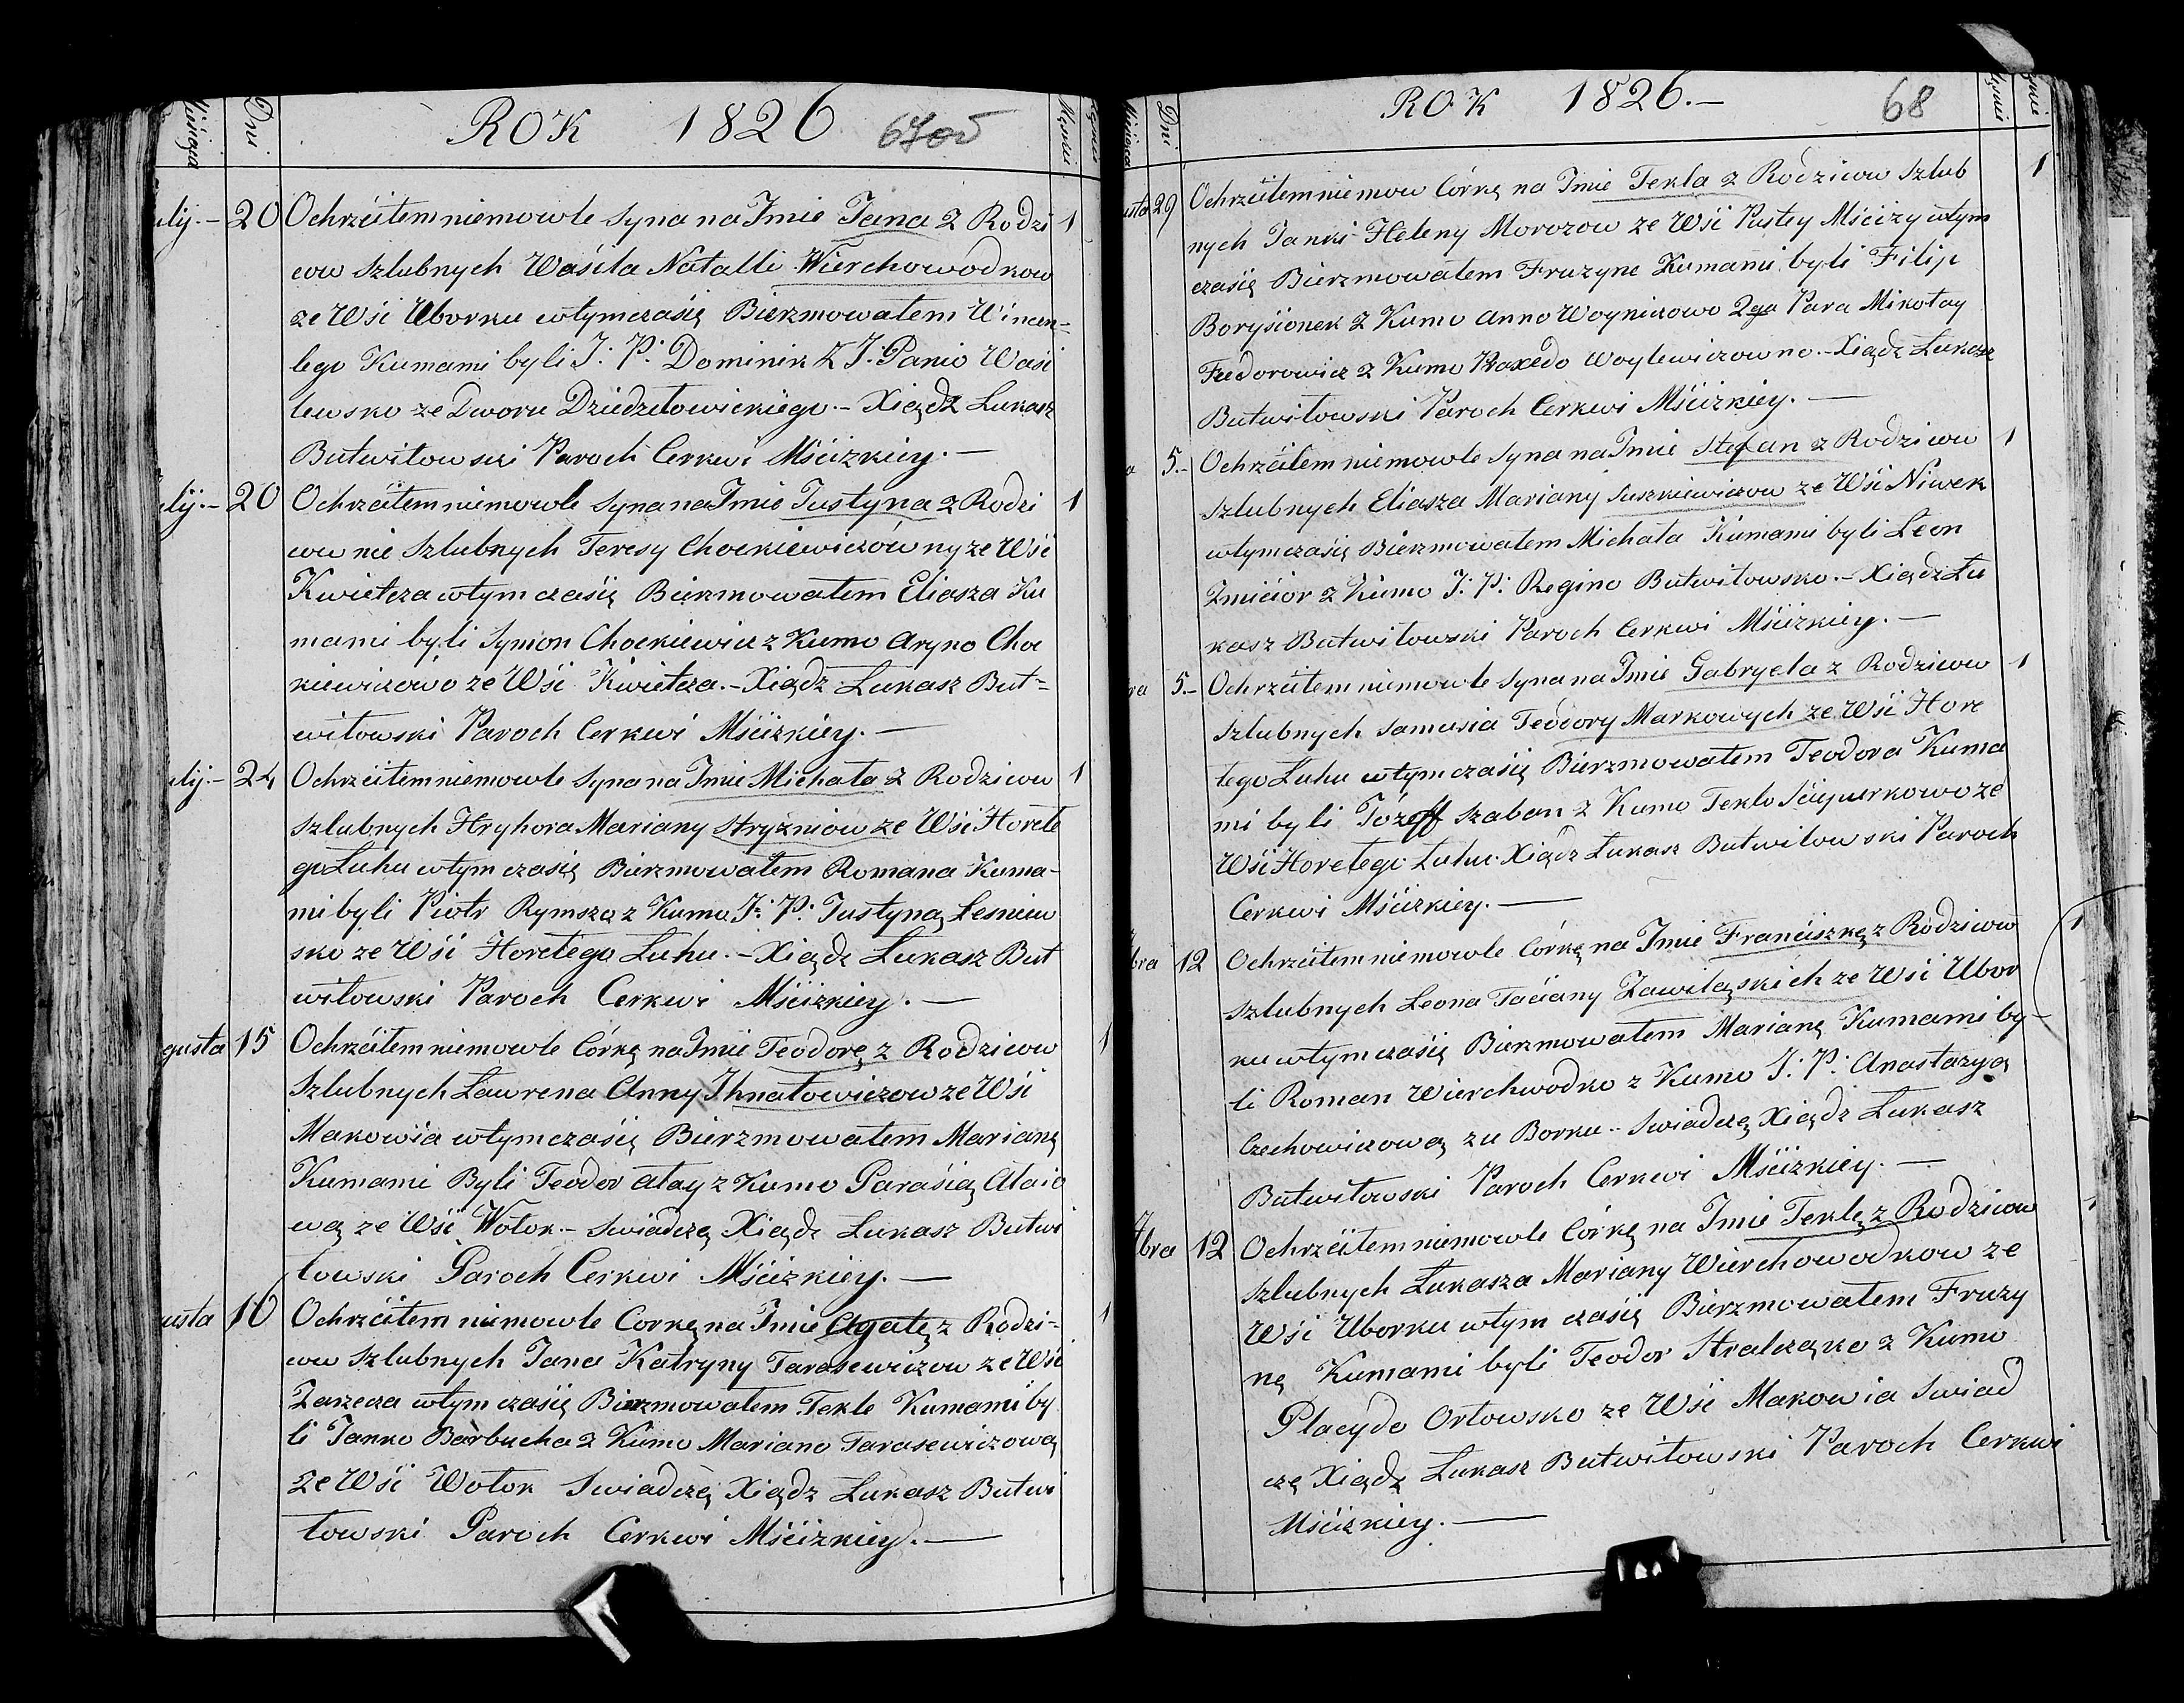 ROK 1826 67об
Miesiąca Dni
ulij.– 20 Ochrzciłem niemowle Syna na Imie Jana z Rodzi 1
cow Szlubnych Wasila Natalli Wierchowodkow
ze Wsi Uborku wtymczasię Bierzmowałem Wincen=
tego Kumami byli J: P: Dominik Z J: Panio Wasi
lewsko ze Dworu Dziedziłowickiego.– Xiądz Łukasz
Butwiłowski Paroch Cerkwi Mścizkiey.–
ulij.– 20 Ochrzciłem niemowle Syna na Imie Justyna z Rodzi 1
cow nie Szlubnych Teresy Chockiewiczow ny ze Wsi
Kwietcza wtym czasię Bierzmowałem Eliasza Ku
mami byli Symon Chockiewicz z Kumo Aryno Choc
kiewiczowo ze Wsi Kwietcza.– Xiądz Łukasz But=
wiłowski Paroch Cerkwi Mścizkiey.–
ulij.– 24 Ochrzciłem niemowle Syna na Imie Michała z Rodzicow 1
Szlubnych Hryhora Maryany Stryżniow ze Wsi Horełe
go Łuhu wtym czasię Bierzmowałem Romana Kuma-
mi byli Piotr Rymsza z Kumo J: P: Justyną Lesniew
sko ze Wsi Horełego Łuhu.– Xiądz Łukasz But
wiłowski Paroch Cerkwi Mścizkiey.–
gusta 15 Ochrzciłem niemowle Córkę na Imie Teodorę z Rodzicow 1
Szlubnych Ławrena Anny Ihnatowiczow ze Wsi
Makowia wtymczasię Bierzmowałem Marianę
Kumami Byli Teodor Ałay z Kumo Parasią Ałaio
wą ze Wsi Wołok.– Swiadczę Xiądz Łukasz Butwi
łowski Paroch Cerkwi Mścizkiey.–
usta 16 Ochrzciłem niemowle Corkę na Imie Agatę z Rodzi= 1
cow Szlubnych Jana Katryny Tarasewiczow ze Wsi
Zarzecza wtym czasię Bierzmowałem Tekle Kumami by
li Janko Barbucha z Kumo Mariano Tarasewiczową
ze Wsi Wołok Swiadczę Xiądz Łukasz Butwi
łowski Paroch Cerkwi Mścizkiey.–
ROK 1826.– 68
Miesiąca Dni
usta 29 Ochrzciłem niemow Córkę na Imie Tekla z Rodzicow Szlub 1
nych Janki Heleny Morozow ze Wsi Pustey Mścizy wtym
czasię Bierzmowałem Fruzyne Kumami byli Filip
Borysionek z Kumo Anno Woyniczowo 2ga Para Mikołay
Fiedorowicz z Kumo Praxedo Woylewiczowno.– Xiądz Łukasz
Butwiłowski Paroch Cerkwi Mścizkiey.–
a 5.– Ochrzciłem niemowle Syna na Imie Stefan z Rodzicow 1
Szlubnych Eliasza Mariany Suszkiewiczow ze Wsi Niwek
wtymczasię Bierzmowałem Michała Kumami byli Leon
Zmicior z Kumo J: P: Regino Butwiłowsko.– Xiądz Łu
kasz Butwiłowski Paroch Cerkwi Mścizkiey.–
ra 5.– Ochrzciłem niemowle Syna na Imie Gabryela z Rodzicow 1
Szlubnych Samusia Teodory Markowych ze Wsi Hore
łego Łuhu wtymczasię Bierzmowałem Teodora Kuma
mi byli Józeff Szaban z Kumo Teklo Sciepurkowo ze
Wsi Horełego Łuhu. Xiądz Łukasz Butwiłowski Paroch
Cerkwi Mścizkiey.–
bra 12 Ochrzciłem niemowle Córkę na Imie Franciszkę z Rodzicow 1
Szlubnych Leona Taciany Zawiłąskich ze Wsi Ubor
ku wtymczasię Bierzmowałem Marianę Kumami by-
li Roman Wierchwodko z Kumo J: P: Anastazyą
Czechowiczową zu Borku.– Swiadczę Xiądz Łukasz
Butwiłowski Paroch Cerkwi Mścizkiey.–
7bra 12 Ochrzciłem niemowle Córkę na Imie Teklę z Rodzicow 1
Szlubnych Łukasza Mariany Wierchowodkow ze
Wsi Uborku wtym czasię Bierzmowałem Fruzy
nę Kumami byli Teodor Stralczako z Kumo
Placydo Orłowsko ze Wsi Makowia Swiad
czę Xiądz Łukasz Butwiłowski Paroch Cerkwi
Mścizkiey.–